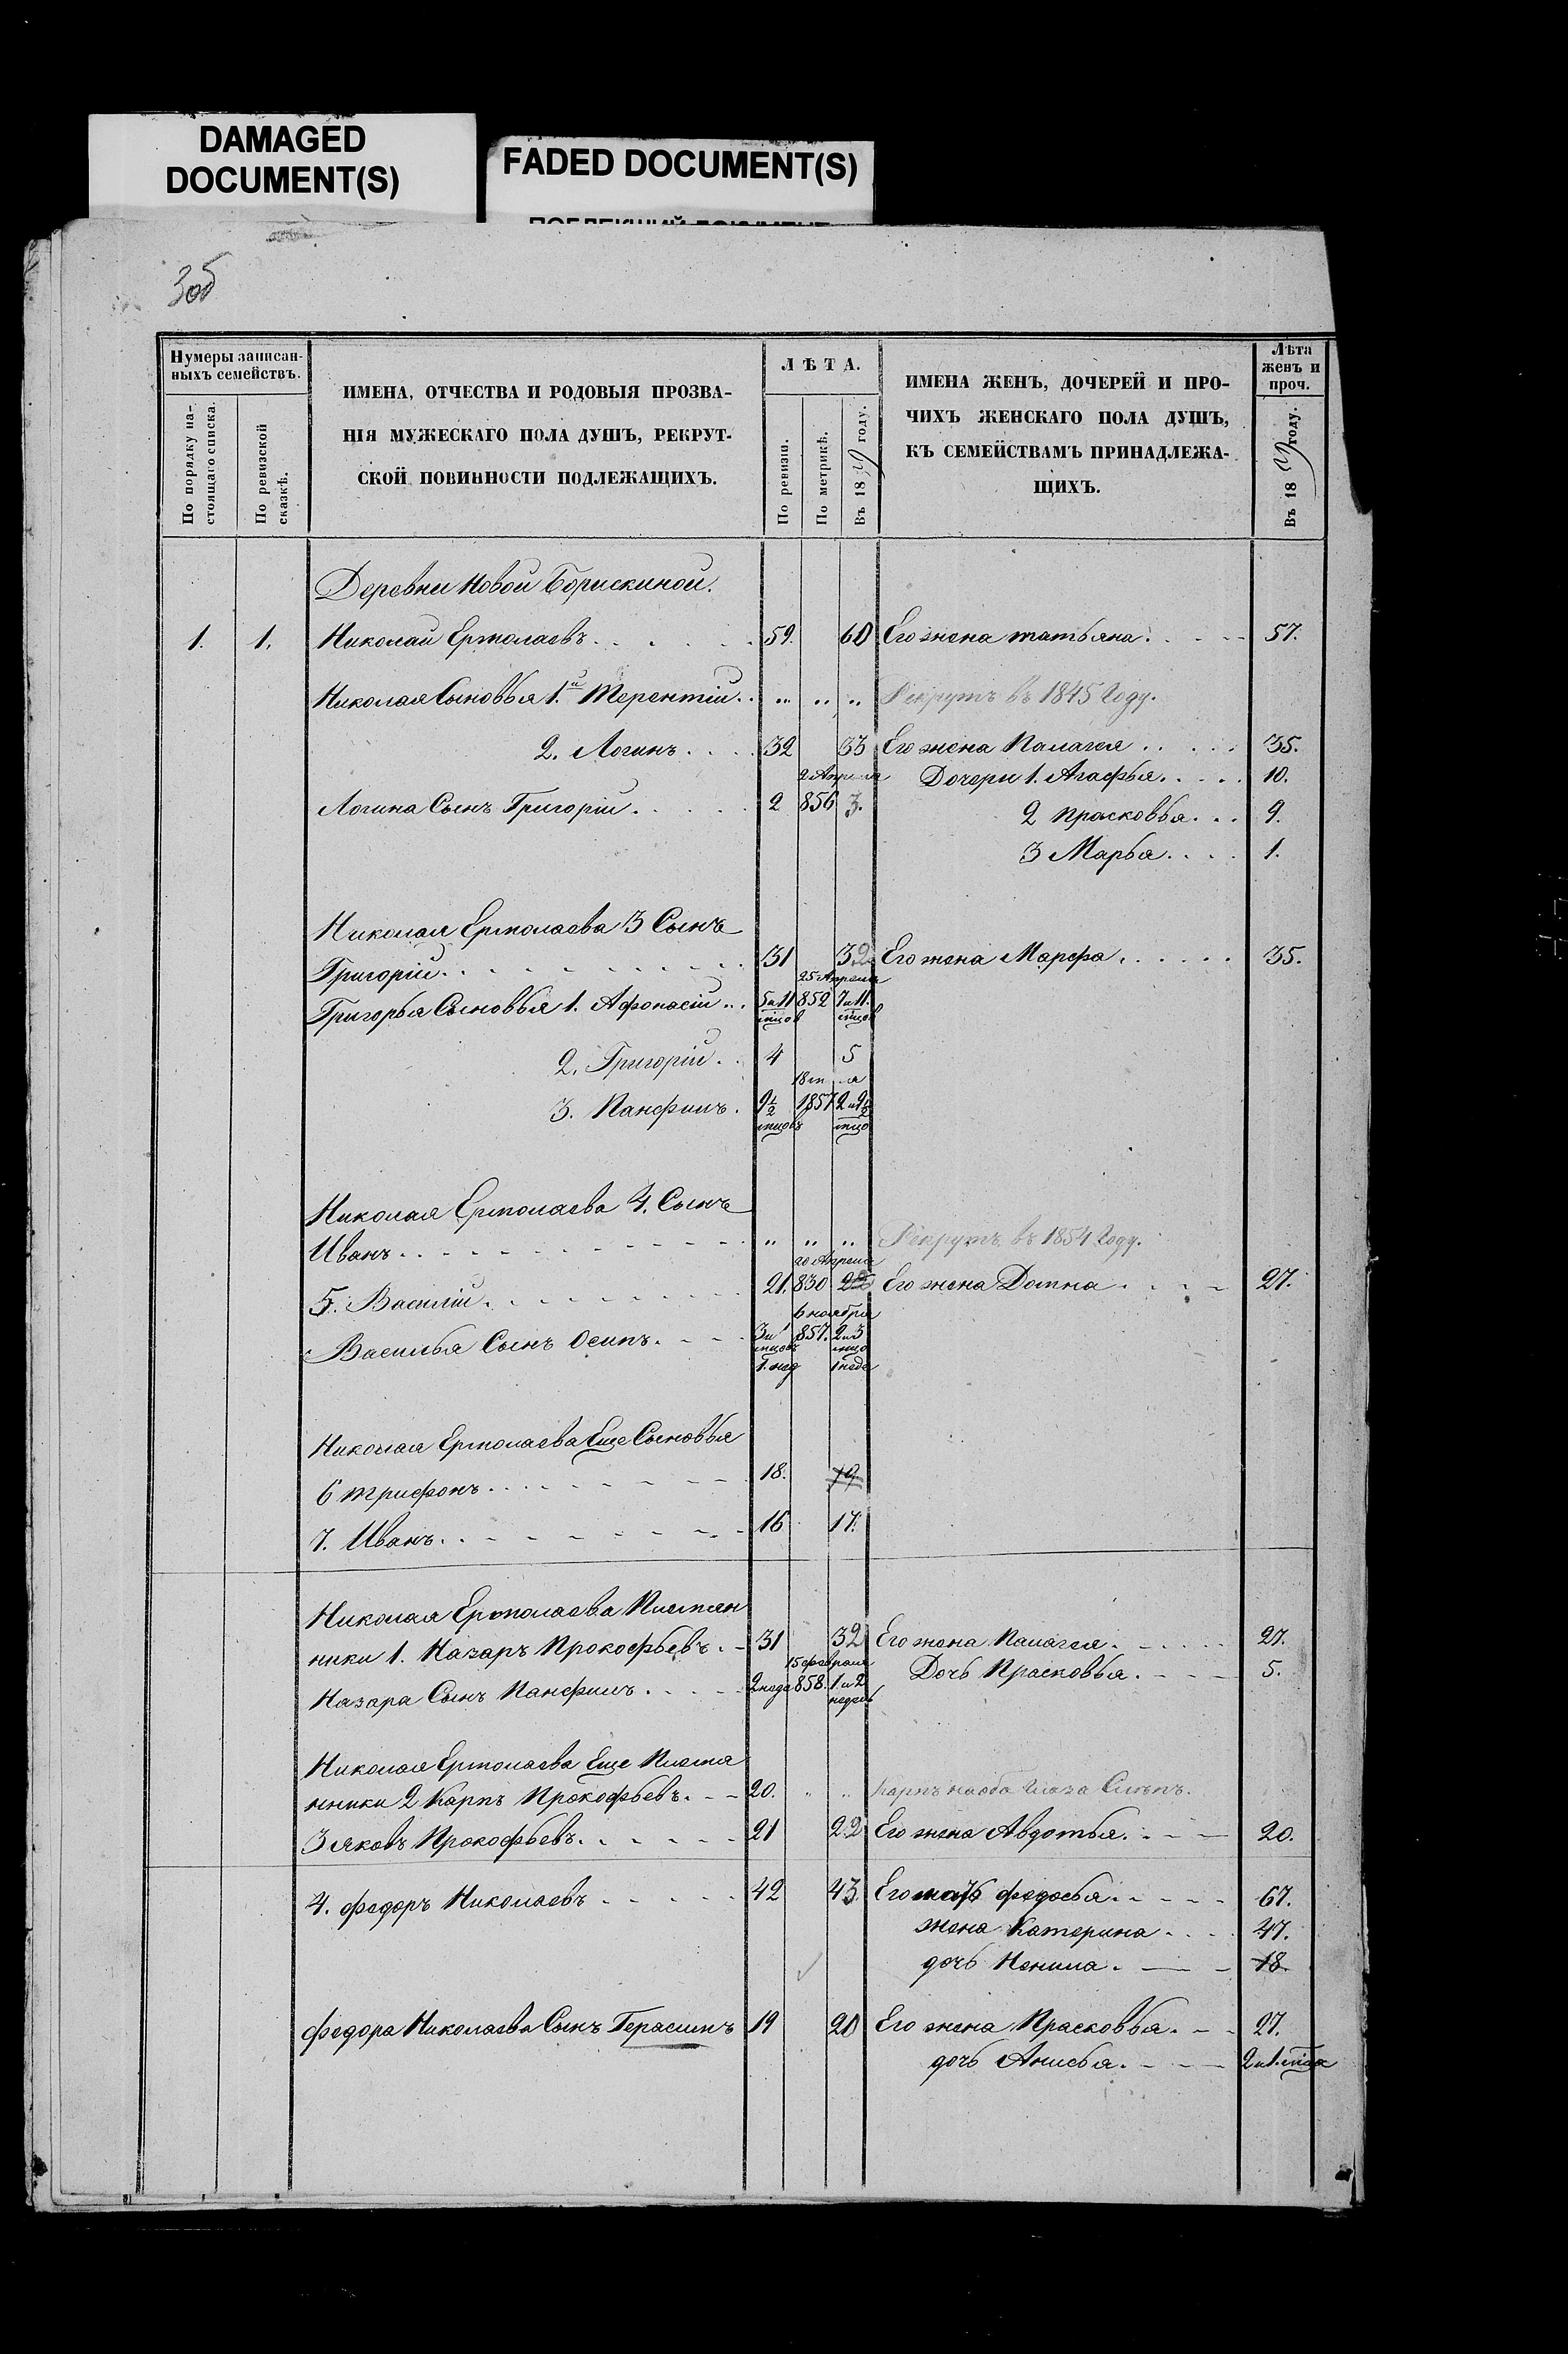 DAMAGED
DOCUMENT(S)
FADED DOCUMENT(S)
Зоб
Нумеры записан-
ныхъ семействъ.
По порядку на-
стоящаго списка.
По ревизской
сказкѣ.
ИМЕНА, ОТЧЕСТВА И РОДОВЫЯ ПРОЗВА-
НІЯ МУЖЕСКАГО ПОЛА ДУШЪ, РЕКРУТ-
СКОЙ ПОВИННОСТИ ПОДЛЕЖАЩИХЪ.
ЛѢТА.
По ревизіи.
По метрикѣ.
Въ 1859 году.
ИМЕНА ЖЕНЪ, ДОЧЕРЕЙ И ПРО-
ЧИХЪ ЖЕНСКАГО ПОЛА ДУШЪ,
КЪ СЕМЕЙСТВАМЪ ПРИНАДЛЕЖА-
ЩИХЪ.
Лѣта
женъ и
проч.
Въ 18 году.
Деревни Новой Борискиной.
1. 1. Николай Ермолаевъ 59. 60 Его жена татьяна 57.
Николая Сыновья 1.й Терентій Рекрутъ въ 1845 Году.
2. Логинъ 32 33 Его жена Палагея 35.
2 Апреля Дочери 1. Агафья 10.
Логина Сынъ Григорій 2 856 3. 2 прасковья 9.
3 Марья 1.
Николая Ермолаева 3 Сынъ
Григорій 31 32 Его жена Марфа 35.
25 Апреля
Григорья Сыновья 1. Афонасій 5 и 11 852 7 и 11
мцов мцов
2. Григорій 4 5
3. Панфилъ 9½ 1857 2 и 9½
мцовъ мцо
Николая Ермолаева 4. Сынъ
Иванъ Рекрутъ въ 1854 Году.
20 Апреля
5. Василій 21. 830 22 Его жена Домна 27.
6 ноября
Василья Сынъ Осипъ 3 и 857. 2 и 3
мцовъ мцо
1. нед 1 неде
Николая Ермолаева Еще Сыновья
6 трифонъ 18. 19
7. Иванъ 16 17.
Николая Ермолаева Племян
ники 1. Назаръ Прокофьевъ 31 32 Его жена Палагея 27.
15 февраля Дочь Прасковья 5.
Назара Сынъ Панфилъ 2 неде 858. 1 и 2
недель
Николая Ермолаева Еще Племя
нники 2 Карпъ Прокофьевъ 20. Карпъ наоба глаза Слепъ.
3 яковъ Прокофьевъ 21 22 Его жена Авдотья 20.
4. федоръ Николаевъ 42 43. Его мать федосья 67.
жена Катерина 47.
дочь Ненила 18
федора Николаева Сынъ Герасимъ 19 20 Его жена Прасковья 27.
дочь Анисья 2 и 1. мца